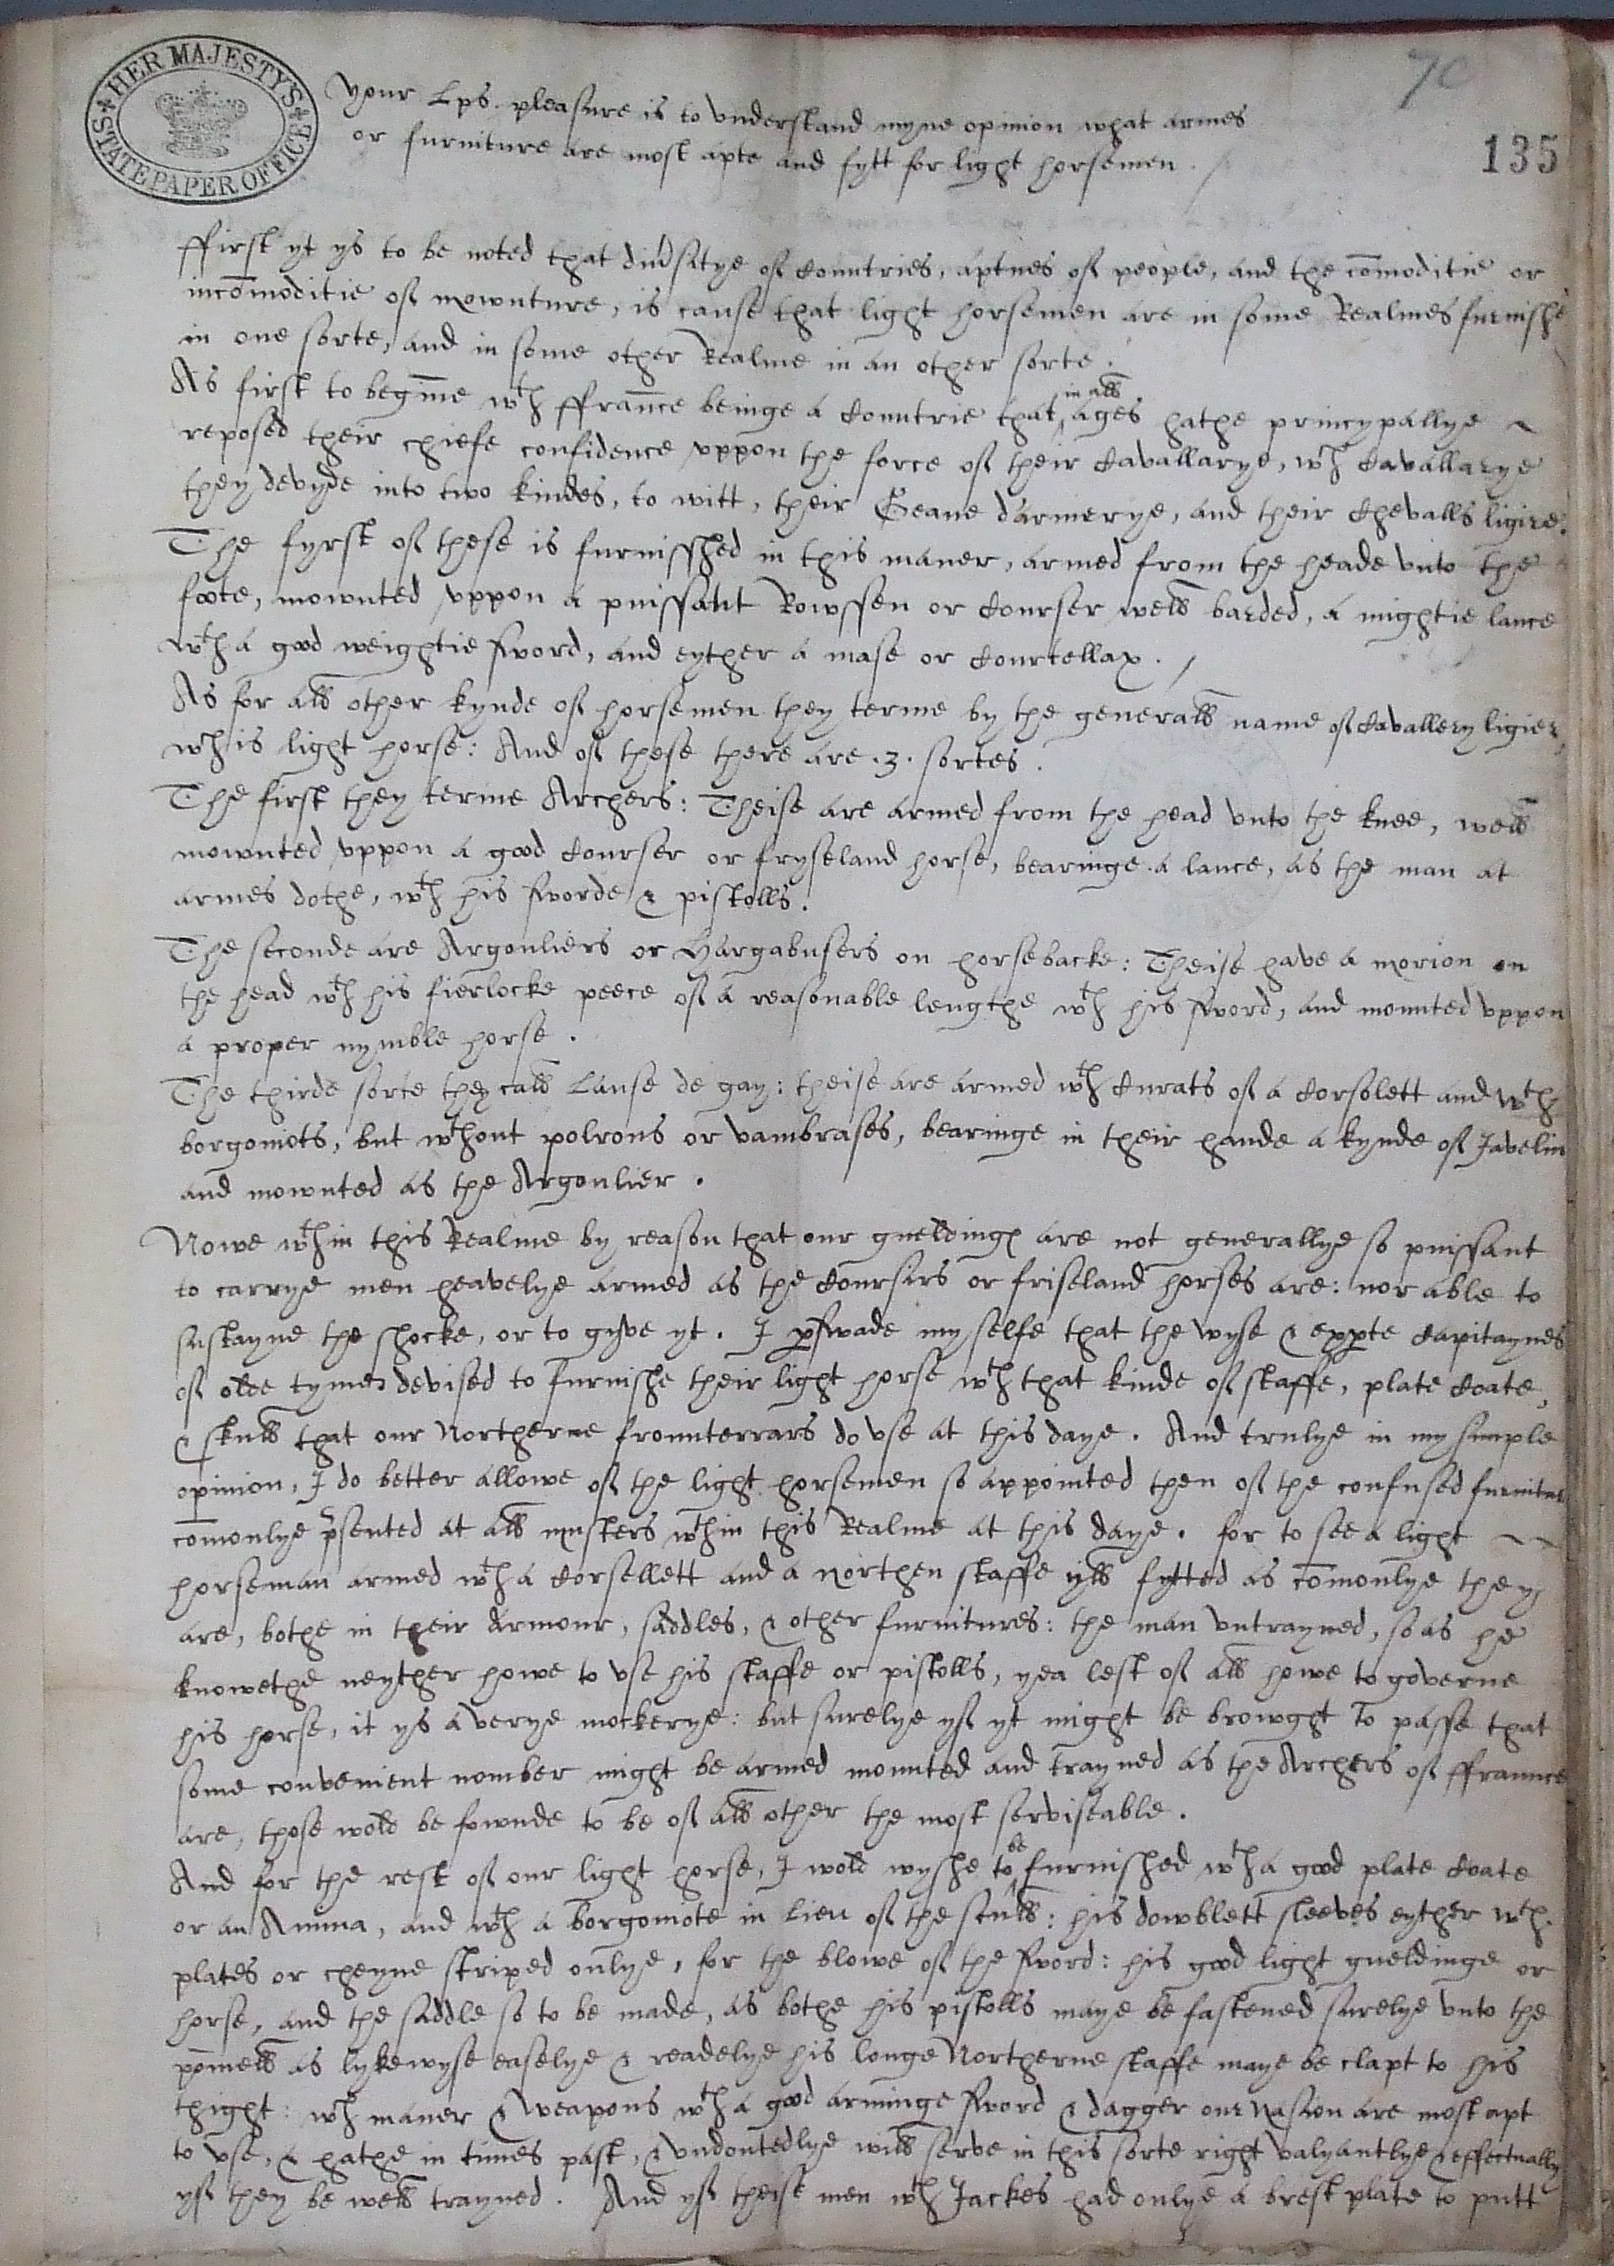 HER MAJESTY'S
STATE PAPER OFFICE
70
135
Your Lps. pleasure is to vnderstand myne opinion what armes
or furniture are most apte and fytt for light horsemen.
ffirst yt ys to be noted that div'sitye of Countries, aptnes of people, and the com̄oditie or
incom̄oditie of mownture, is cause that light horsemen are in some Realmes furnishe
in one sorte, and in some other Realme in an other sorte.
As first to begin̄e wth ffran̄ce beinge a Countrie that in all ages hathe princypallye
reposed their chiefe confidence vppon the force of their Cavallarye, wch Cavallarye
they devyde into two kindes, to witt, their Geane d'armerye, and their Chevalls ligire.
The fyrst of these is furnisshed in this maner, armed from the heade vnto the
foote, mownted vppon a puissant Rowssen or Courser well barded, a mightie lance
wth a good weightie sword, and eyther a mase or Courtellax.
As for all other kynde of horsemen they terme by the generall name of Cavallery ligier,
wch is light horse: And of these there are .3. sortes.
The first they terme Archers: Theise are armed from the head vnto the knee, well
mownted vppon a good Courser or fryseland horse, bearinge a lance, as the man at
armes dothe, wth his sworde & pistolls.
The seconde are Argouliers or Hargabusers on horsebacke: Theise have a morion on
the head wth his fierlocke peece of a reasonable lengthe wth his sword, and mounted vppon
a proper nymble horse.
The thirde sorte they call Lanse de gay: theise are armed wth Curats of a Corsolett and wth
borgonots, but wthout polrons or vambrases, bearinge in their hande a kynde of Javelin
and mownted as the Argoulier.
Nowe wthin this Realme by reason that our gueldings are not generallye so puissant
to carrye men heavelye armed as the Coursers or friseland horses are: nor able to
sustayne the shocke, or to gyve yt. I pswade my selfe that the wyse & expte Capitaynes
of olde tymes devised to furnishe their light horse wth that kinde of staffe, plate Coate,
& skull that our Northerne frounterrars do vse at this daye. And trulye in my simple
opinion, I do better allowe of the light horsemen so appointed then of the confused furnitur
com̄onlye psented at all musters wthin this Realme at this daye. for to see a light
horseman armed wth a Corsellett and a northen staffe yll fytted as com̄onlye they
are, bothe in their Armour, saddles, & other furnitures: the man vntrayned, so as he
knowethe neyther howe to vse his staffe or pistolls, yea lest of all howe to governe
his horse, it ys a verye mockerye: but surelye yf yt might be browght to passe that
some convenient nomber might be armed mounted and trayned as the Archers of ffraunce
are, those wold be fownde to be of all other the most serviseable.
And for the rest of our light horse, I wold wyshe to be furnished wth a good plate Coate
or an Anima, and wth a borgonote in lieu of the scull: his dowblett sleeves eyther wth
plates or cheyne striped onlye, for the blowe of the sword: his good light gueldinge or
horse, and the saddle so to be made, as bothe his pistolls maye be fastened surelye vnto the
pom̄ell as lykewyse easelye & readelye his longe Northerne staffe maye be clapt to his
thight: wch maner & weapons wth a good arminge sword & dagger our Nasion are most apt
to vse, & hathe in times past, & vndoutedlye will serve in this sorte right valyantlye & effectually
yf they be well trayned. And yf theise men wth Jackes had onlye a brest plate to putt